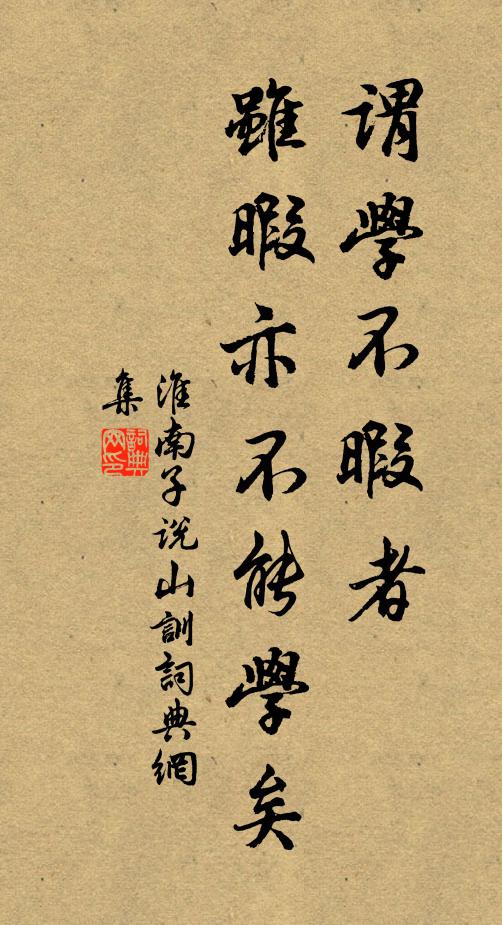 謂學不暇者
雖暇亦不能學矣
淮南子说山訓詞典網
集
詞典網印